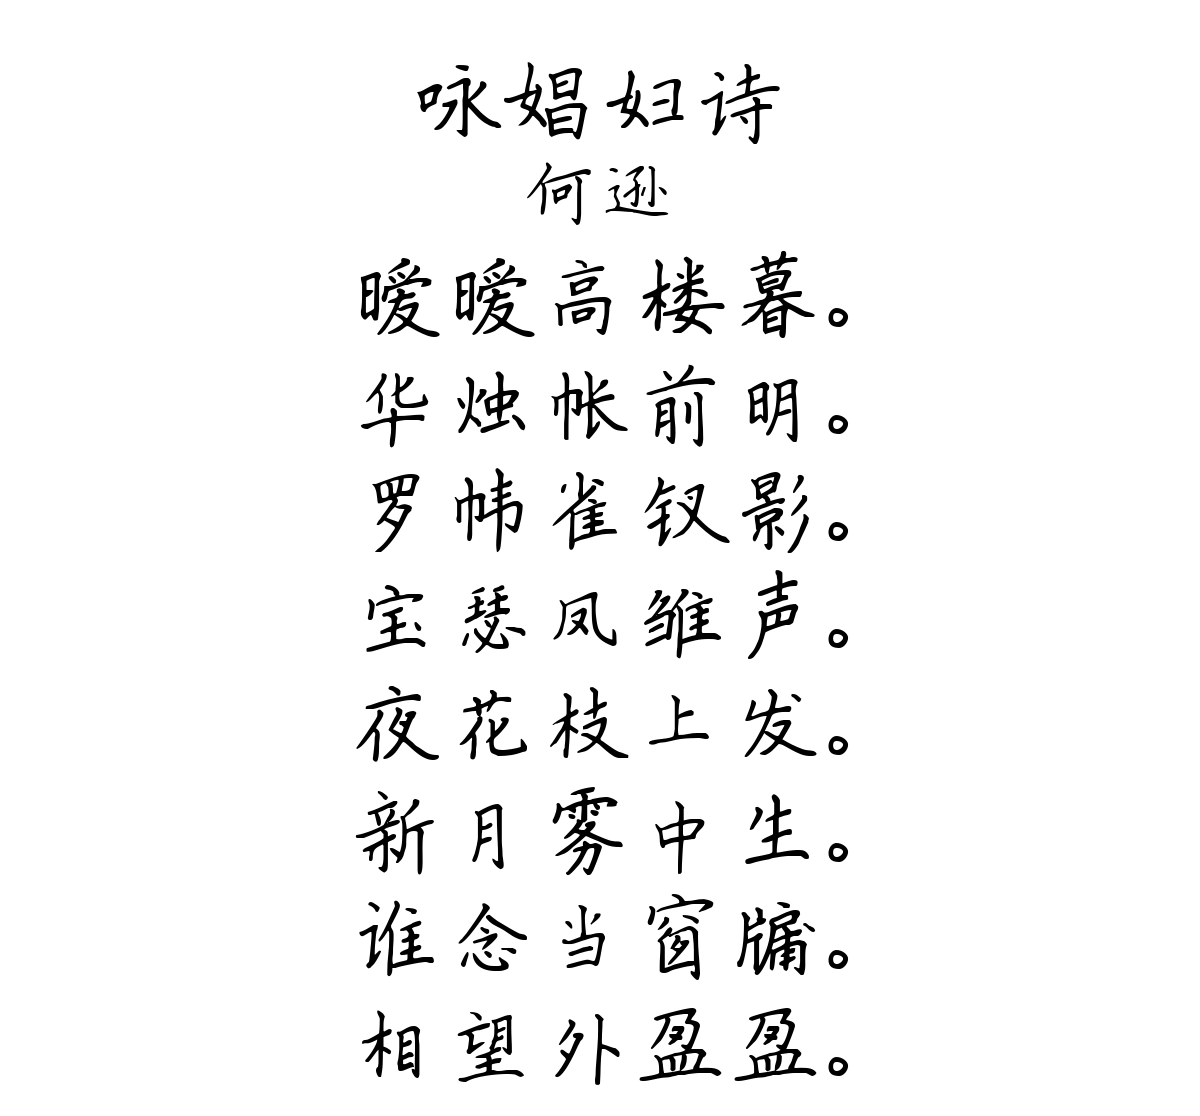 咏娼妇诗
何逊
暧暧高楼暮。
华烛帐前明。
罗帏雀钗影。
宝瑟凤雏声。
夜花枝上发。
新月雾中生。
谁念当窗牖。
相望外盈盈。